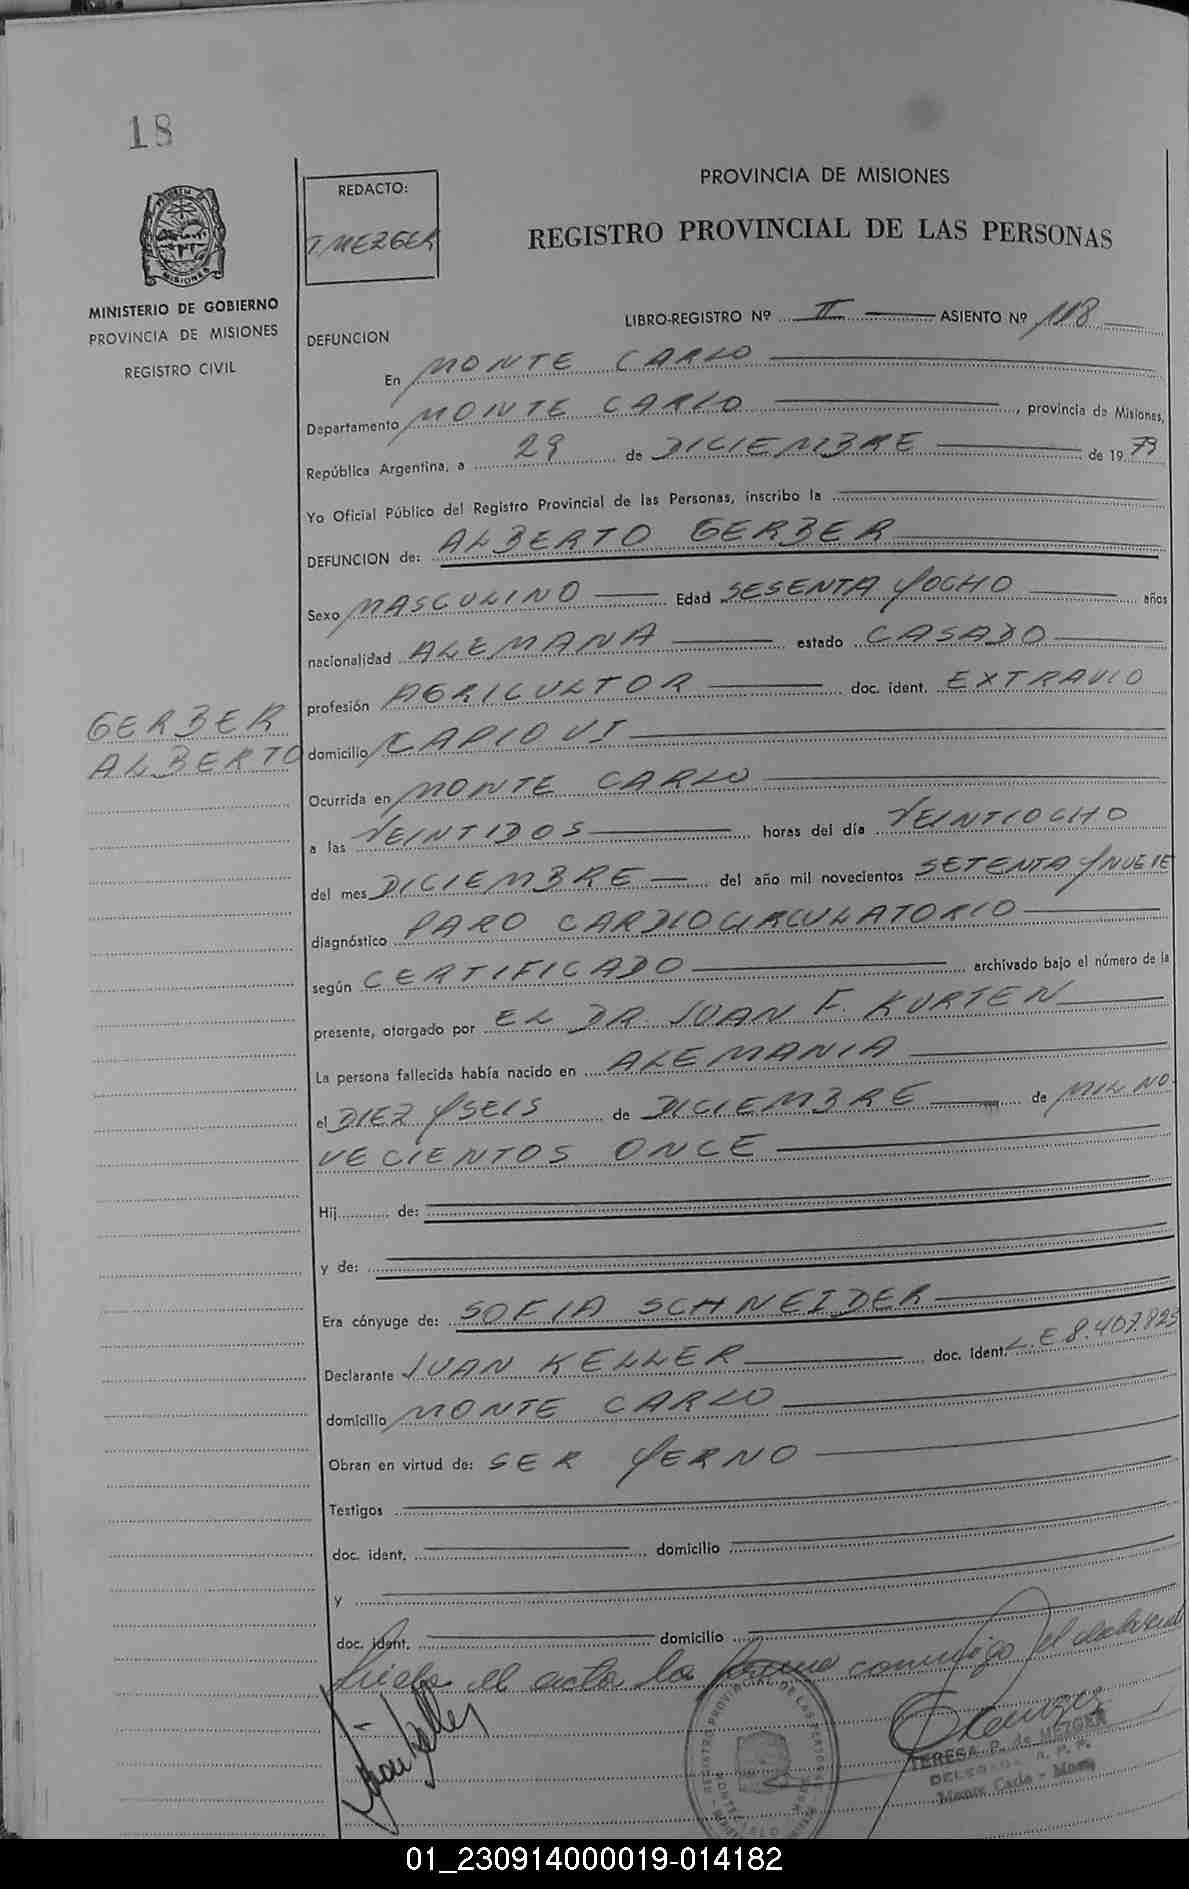 18
REDACTO:
T. MEZGER
PROVINCIA DE MISIONES
REGISTRO PROVINCIAL DE LAS PERSONAS
MISIONES
MINISTERIO DE GOBIERNO
PROVINCIA DE MISIONES
REGISTRO CIVIL
LIBRO-REGISTRO Nº II ASIENTO Nº 118
DEFUNCION
En MONTE CARLO
Departamento MONTE CARLO, provincia de Misiones,
República Argentina, a 29 de DICIEMBRE de 1979
Yo Oficial Público del Registro Provincial de las Personas, inscribo la
DEFUNCION de: ALBERTO GERBER
Sexo MASCULINO Edad SESENTA Y OCHO años
nacionalidad ALEMANA estado CASADO
profesión AGRICULTOR doc. ident. EXTRAVIO
GERBER
ALBERTO
domicilio CAPIOVI
Ocurrida en MONTE CARLO
a las VEINTIDOS horas del día VEINTIOCHO
del mes DICIEMBRE del año mil novecientos SETENTA Y NUEVE
diagnóstico PARO CARDIOCIRCULATORIO
según CERTIFICADO archivado bajo el número de la
presente, otorgado por EL DR. JUAN F. KURTEN
La persona fallecida había nacido en ALEMANIA
el DIEZ Y SEIS de DICIEMBRE de MIL NO
VECIENTOS ONCE
Hij de:
y de:
Era cónyuge de: SOFIA SCHNEIDER
Declarante JUAN KELLER doc. ident. L.E 8.407.823
domicilio MONTE CARLO
Obran en virtud de: SER YERNO
Testigos
doc. ident. domicilio
y
doc. ident. domicilio
Leída el acta la firma conmigo el declarante
Juan Keller
REGISTRO PROVINCIAL DE LAS PERSONAS
TERESA P. de MEZGER
DELEGADA R. P. P.
Monte Carlo - Mnes
01_230914000019-014182